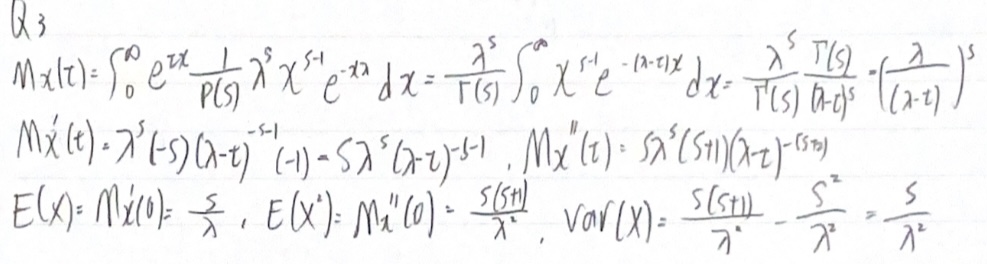 Q3
Mx(t) = ∫₀^∞ e^{tx} 1/Γ(s) λ^s x^{s-1} e^{-xλ} dx = λ^s/Γ(s) ∫₀^∞ x^{s-1} e^{-(λ-t)x} dx = λ^s/Γ(s) Γ(s)/(λ-t)^s = (λ/(λ-t))^s
Mx'(t) = λ^s(-s)(λ-t)^{-s-1}(-1) = sλ^s(λ-t)^{-s-1}, Mx''(t) = sλ^s(s+1)(λ-t)^{-(s+2)}
E(X) = Mx'(0) = s/λ, E(X²) = Mx''(0) = s(s+1)/λ², var(X) = s(s+1)/λ² - s²/λ² = s/λ²